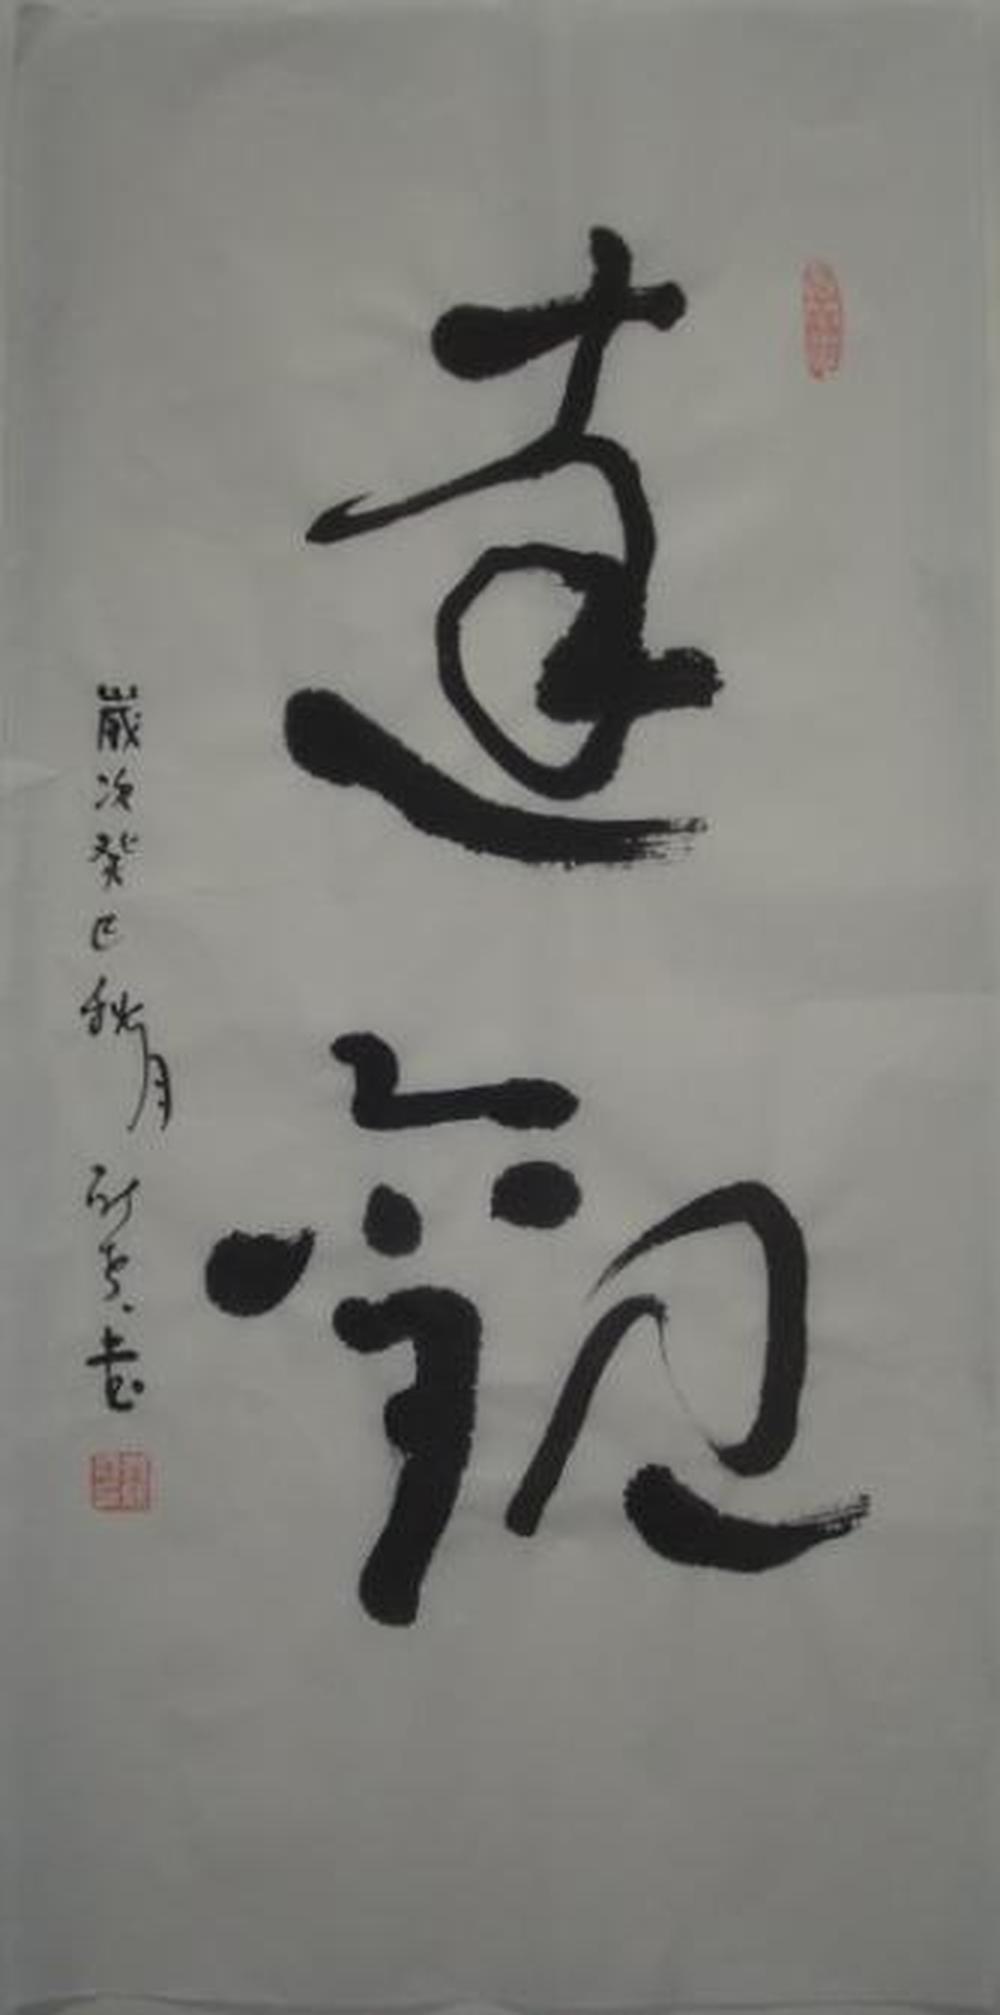 達觀
歲次癸巳秋月